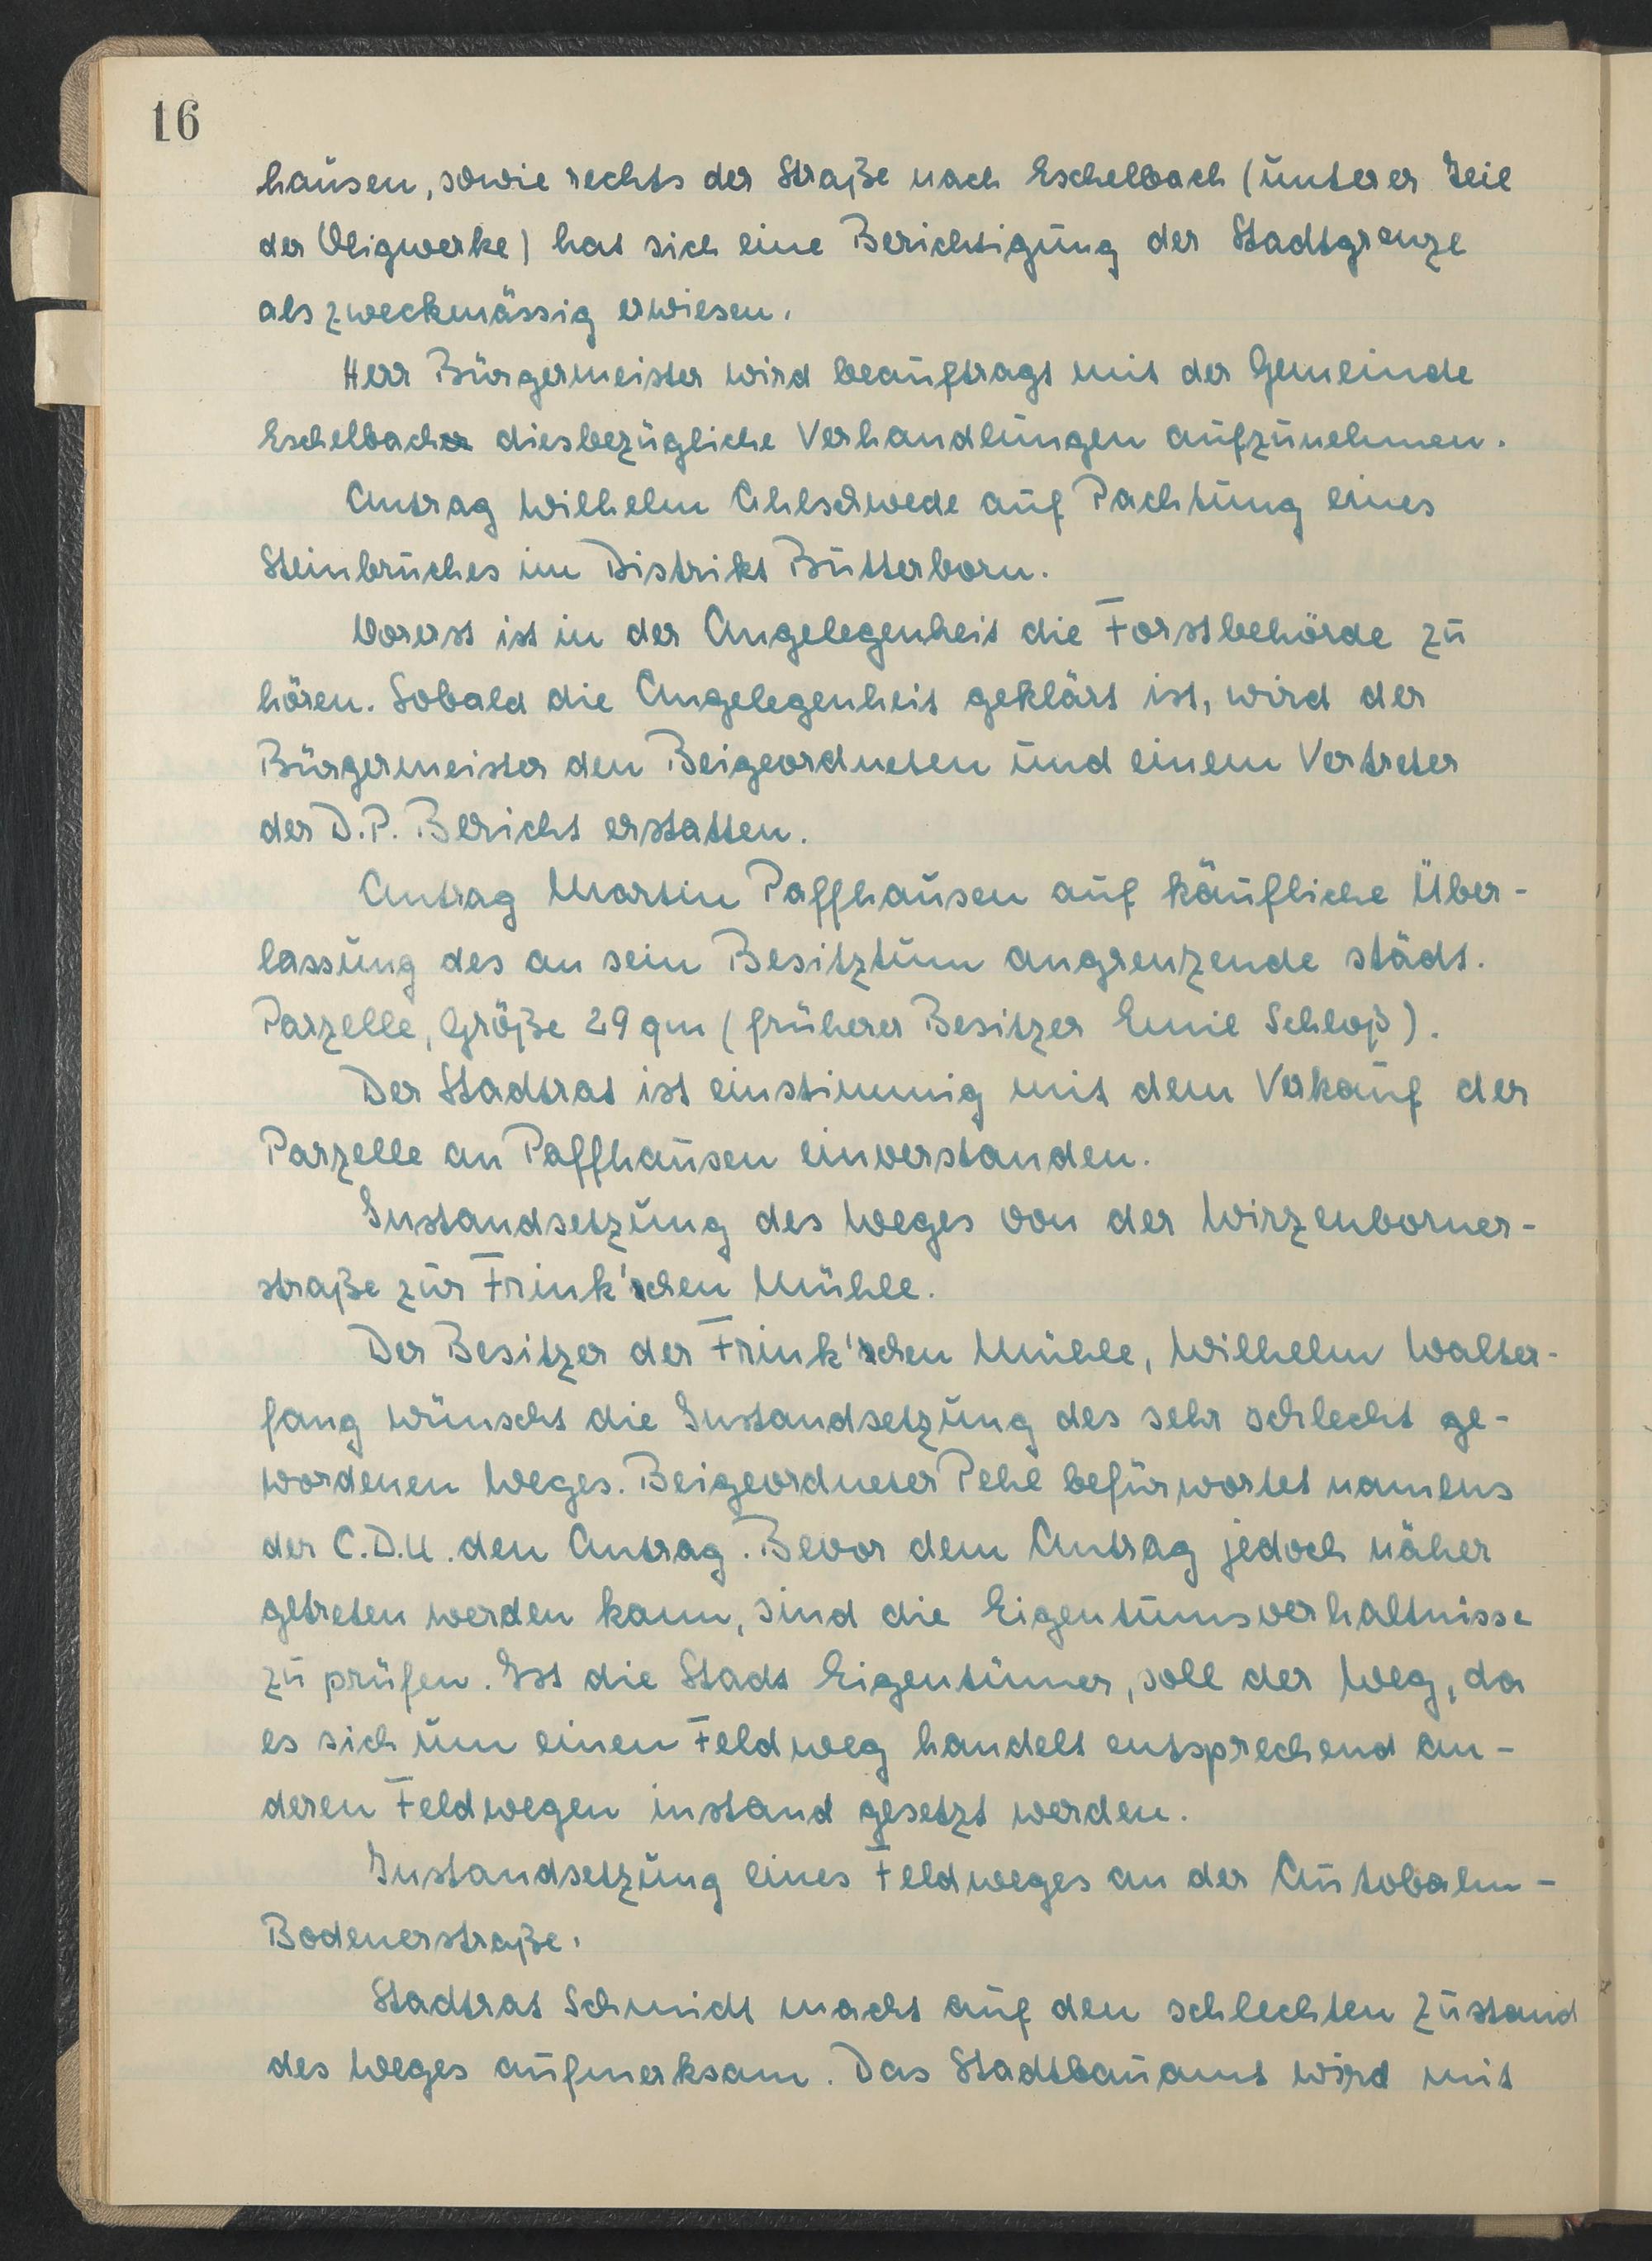 16
hausen, sowie rechts der Straße nach Eschelbach (unterer Teil
der Oligwerke) hat sich eine Berichtigung der Stadtgrenze
als zweckmässig erwiesen.
Herr Bürgermeister wird beauftragt mit der Gemeinde
Eschelbach diesbezügliche Verhandlungen aufzunehmen.
Antrag Wilhelm Ahlschwede auf Pachtung eines
Steinbruches im Distrikt Butterborn.
Vorerst ist in der Angelegenheit die Forstbehörde zu
hören. Sobald die Angelegenheit geklärt ist, wird der
Bürgermeister den Beigeordneten und einem Vertreter
der D.P. Bericht erstatten.
Antrag Martin Paffhausen auf käufliche Über-
lassung des an sein Besitztum angrenzende städt.
Parzelle, Größe 29 qm (früherer Besitzer Emil Schloß).
Der Stadtrat ist einstimmig mit dem Verkauf der
Parzelle an Paffhausen einverstanden.
Instandsetzung des Weges von der Wirzenborner-
straße zur Frink'schen Mühle.
Der Besitzer der Frink'schen Mühle, Wilhelm Walter-
fang wünscht die Instandsetzung des sehr schlecht ge-
wordenen Weges. Beigeordneter Pehl befürwortet namens
der C.D.U. den Antrag. Bevor dem Antrag jedoch näher
getreten werden kann, sind die Eigentumsverhaltnisse
zu prüfen. Ist die Stadt Eigentümer, soll der Weg, da
es sich um einen Feldweg handelt entsprechend an-
deren Feldwegen instand gesetzt werden.
Instandsetzung eines Feldweges an der Autobahn-
Bodenerstraße.
Stadtrat Schmidt macht auf den schlechten Zustand
des Weges aufmerksam. Das Stadtbauamt wird mit